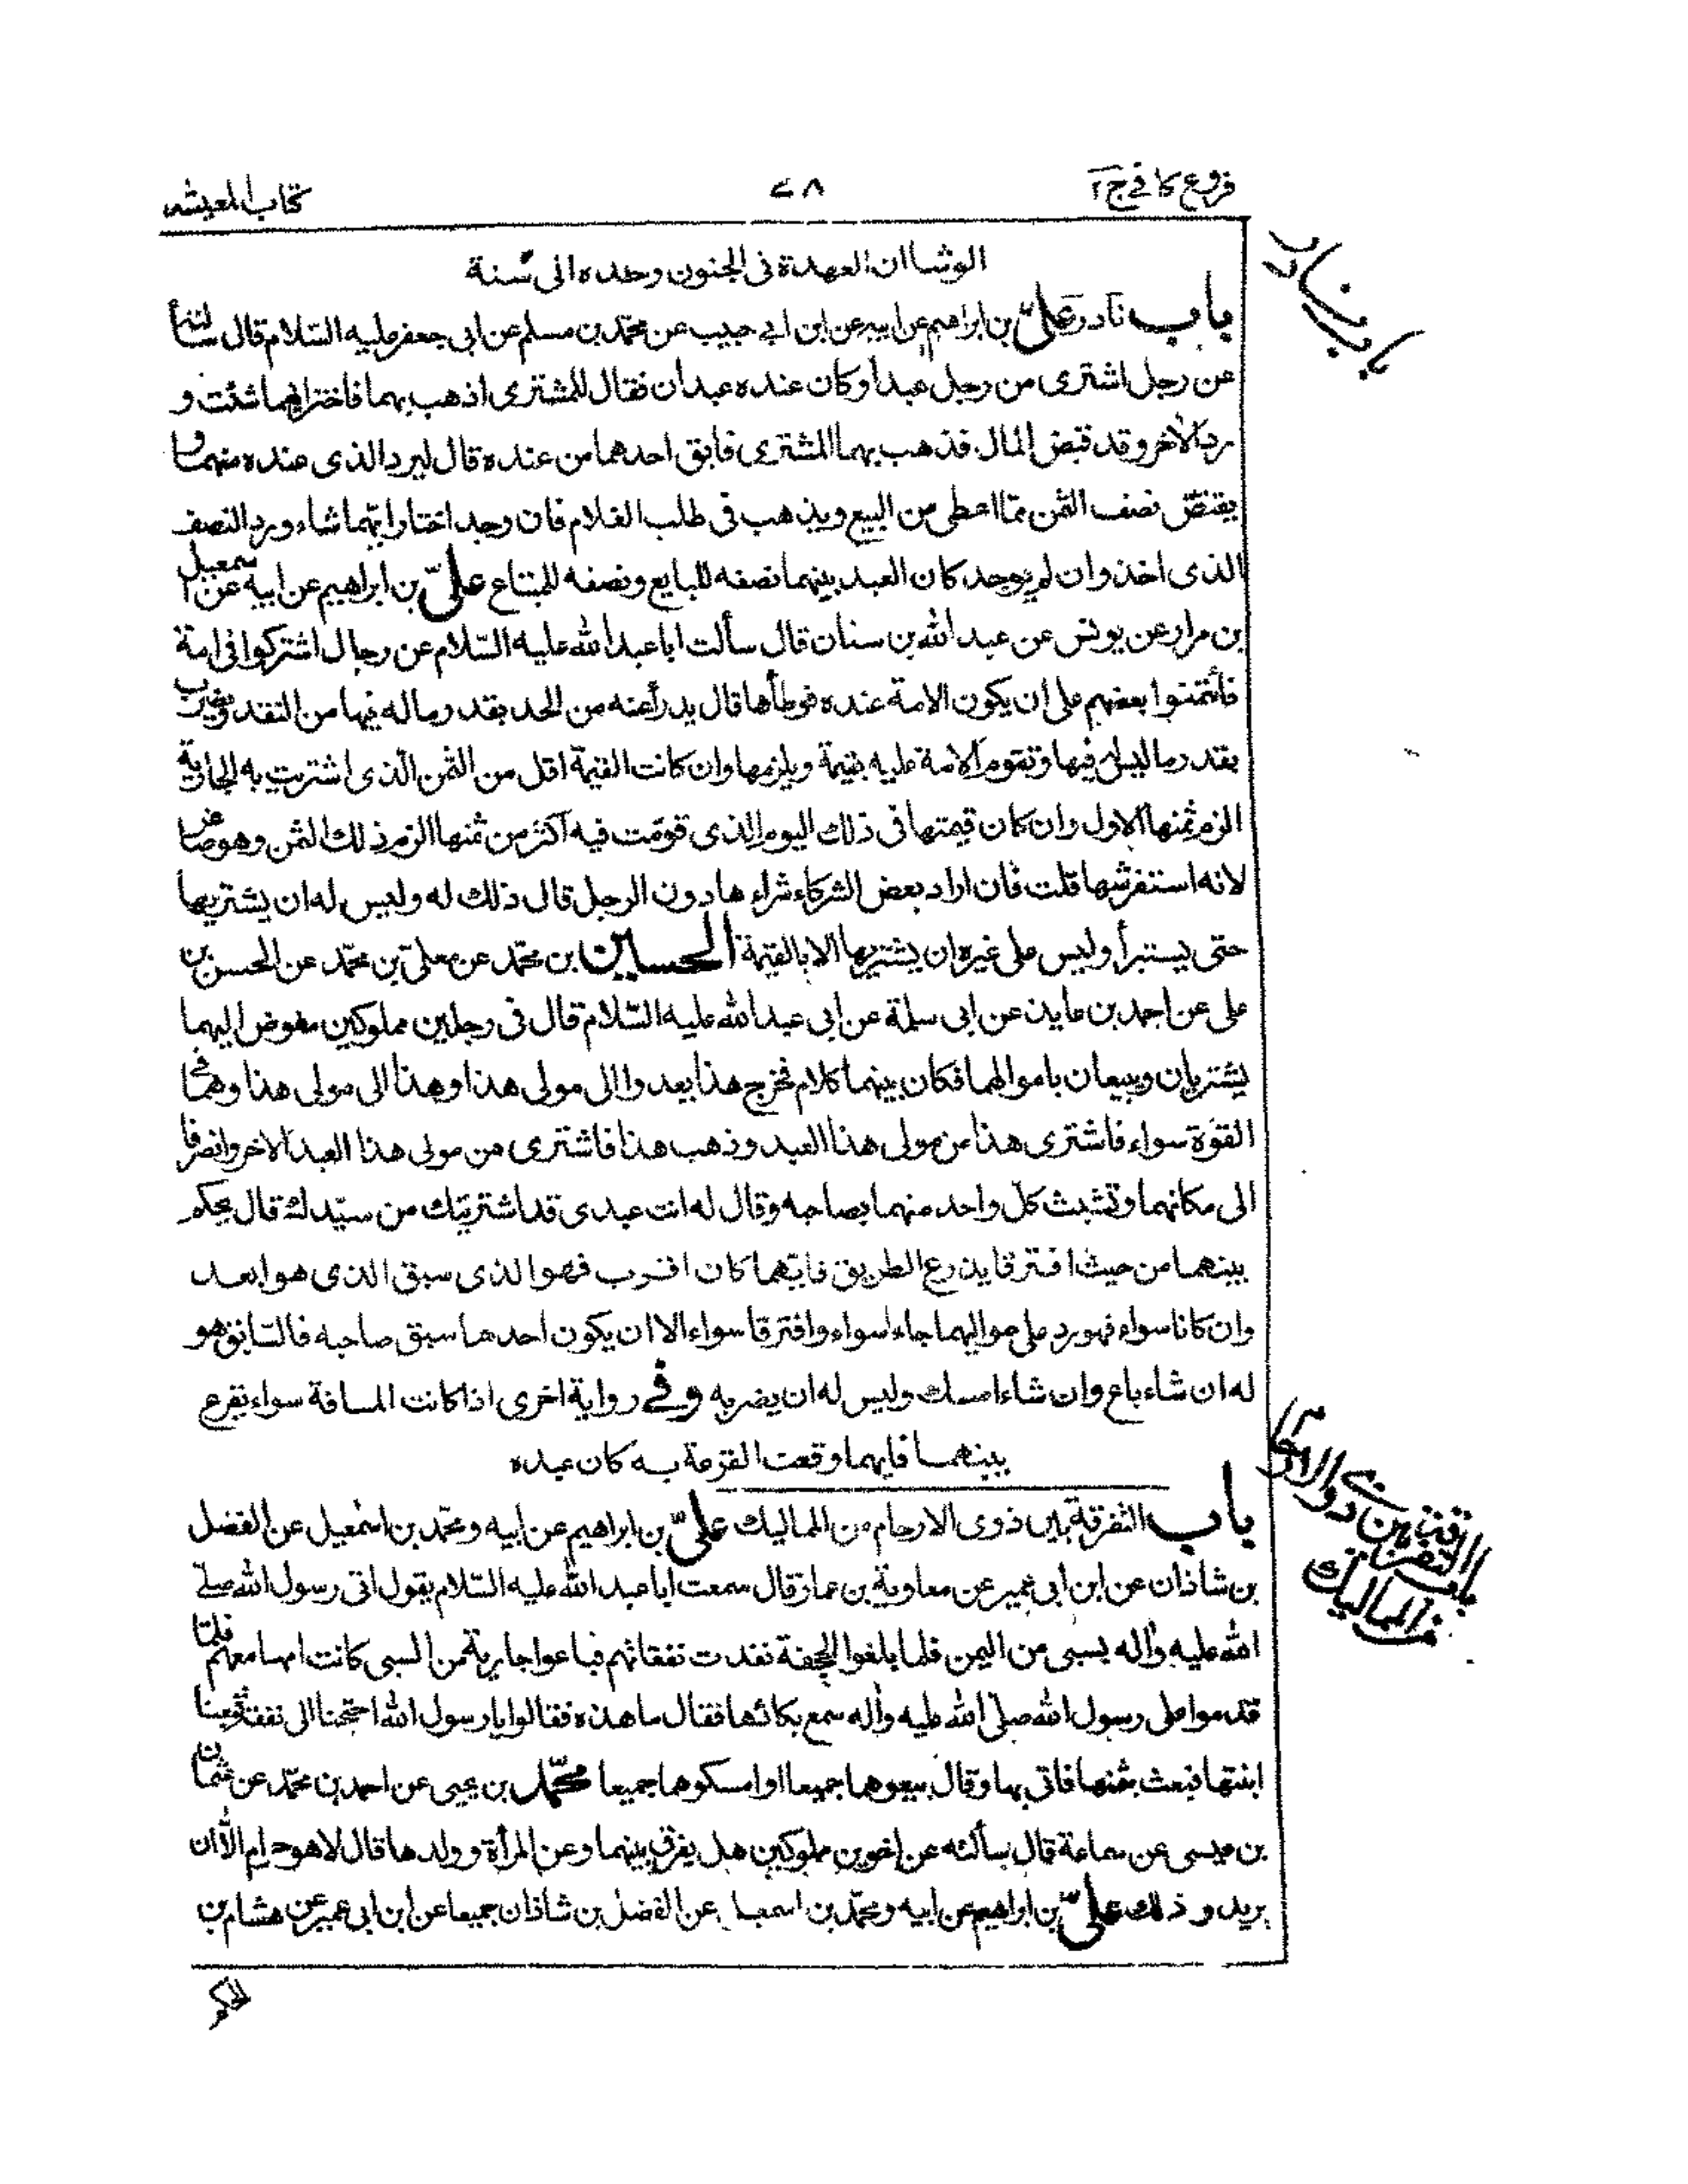 فروع كافي ج ٢
٧٨
كتاب المعيشه
الوشا ان العهدة فى الجنون وحده الى سنة
باب نادر
باب نادر علىّ بن ابراهيم عن ابيه عن ابن ابى حبيب عن محمّد بن مسلم عن ابى جعفر عليه السّلام قال سألته
عن رجل اشترى من رجل عبدا وكان عنده عبدان فقال للمشترى اذهب بهما فاختر ايهما شئت و
رد الاخر وقد قبض المال فذهب بهما المشترى فابق احدهما من عنده قال ليرد الذى عنده منهما و
يقبض نصف الثمن ممّا اعطى من البيع ويذهب فى طلب الغلام فان وجد اختار ايّهما شاء ورد النصف
الذى اخذ وان لم يوجد كان العبد بينهما نصفه للبايع ونصفه للمبتاع علىّ بن ابراهيم عن ابيه عن اسمعيل
بن مرار عن يونس عن عبد الله بن سنان قال سألت ابا عبد الله عليه السّلام عن رجال اشتركوا فى امة
فأتمنوا بعضهم على ان يكون الامة عنده فوطأها قال يدرأ عنه من الحد بقدر ماله فيها من النقد ويضرب
بقدر ما ليس له فيها وتقوم الامة عليه بقيمة ويلزمها وان كانت القيمة اقل من الثمن الّذى اشتريت به الجارية
الزم ثمنها الاول وان كان قيمتها فى ذلك اليوم الذى قوّمت فيه اكثر من ثمنها الزم ذلك الثمن وهو صاغر
لانه استفرشها قلت فان اراد بعض الشركاء شراءها دون الرجل قال ذلك له وليس له ان يشتريها
حتى يستبرأ وليس على غيره ان يشتريها الا بالقيمة الحسين بن محمّد عن معلىّ بن محمّد عن الحسن بن
على عن احمد بن عايذ عن ابى سلمة عن ابى عبد الله عليه السّلام قال فى رجلين مملوكين مفوض اليهما
يشتريان ويبيعان باموالهما فكان بينهما كلام فخرج هذا يعدوا الى مولى هذا وهذا الى مولى هذا وهما فى
القوّة سواء فاشترى هذا من مولى هذا العبد وذهب هذا فاشترى من مولى هذا العبد الاخر وانصرفا
الى مكانهما وتشبث كلّ واحد منهما بصاحبه وقال له انت عبدى قد اشتريتك من سيّدك قال يحكم
بينهما من حيث افترقا يذرع الطريق فايّهما كان اقرب فهو الذى سبق الذى هو ابعد
وان كانا سواء فهو رد على مواليهما جاءا سواء وافترقا سواء الا ان يكون احدهما سبق صاحبه فالسّابق هو
له ان شاء باع وان شاء امسك وليس له ان يضربه وفى رواية اخرى اذا كانت المسافة سواء يقرع
بينهما فايهما وقعت القرعة به كان عبده
باب التفرقة بين ذوى الارحام من المماليك
باب التفرقة بين ذوى الارحام من المماليك علىّ بن ابراهيم عن ابيه ومحمّد بن اسمعيل عن الفضل
بن شاذان عن ابن ابى عمير عن معاوية بن عمار قال سمعت ابا عبد الله عليه السّلام يقول اتى رسول الله صلّى
الله عليه واله بسبى من اليمن فلما بلغوا الجحفة نفدت نفقاتهم فباعوا جارية من السبى كانت امها معهم فلمّا
قدموا على رسول الله صلّى الله عليه واله سمع بكائها فقال ما هذه فقالوا يا رسول الله احتجنا الى نفقة فبعنا
ابنتها فبعث بثمنها فاتى بها وقال بيعوهما جميعا او امسكوهما جميعا محمّد بن يحيى عن احمد بن محمّد عن عثمان
بن عيسى عن سماعة قال سألته عن اخوين مملوكين هل يفرق بينهما وعن المرأة وولدها قال لا هو حرام الّا ان
يريدوا ذلك علىّ بن ابراهيم عن ابيه ومحمّد بن عن الفضل بن شاذان جميعا عن ابن ابى عمير عن هشام بن
الحكم